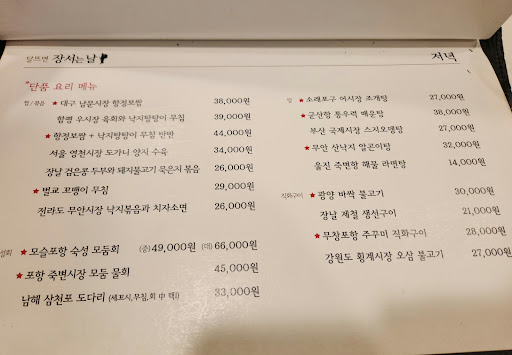 달뜨면 장서는날
저녁
*단품 요리 메뉴
찜/볶음 ★ 대구 남문시장 항정보쌈 38,000원
함평 우시장 육회와 낙지탕탕이 무침 39,000원
★ 항정보쌈 + 낙지탕탕이 무침 반반 44,000원
서울 영천시장 도가니 양지 수육 34,000원
장날 검은콩 두부와 돼지불고기 묵은지 볶음 26,000원
★ 벌교 꼬뱅이 무침 29,000원
전라도 무안시장 낙지볶음과 치자소면 26,000원
★ 모슬포항 숙성 모둠회 (중)49,000원 (대)66,000원
★ 포항 죽변시장 모둠 물회 45,000원
남해 삼천포 도다리 (세꼬시,무침,회 中 택1) 33,000원
탕 ★ 소래포구 어시장 조개탕 27,000원
★ 군산항 통우럭 매운탕 38,000원
부산 국제시장 스지오뎅탕 27,000원
★ 무안 산낙지 알곤이탕 32,000원
울진 죽변항 해물 라면탕 14,000원
직화구이 ★ 광양 바싹 불고기 30,000원
장날 제철 생선구이 21,000원
★ 무창포항 주꾸미 직화구이 28,000원
강원도 횡계시장 오삼 불고기 27,000원